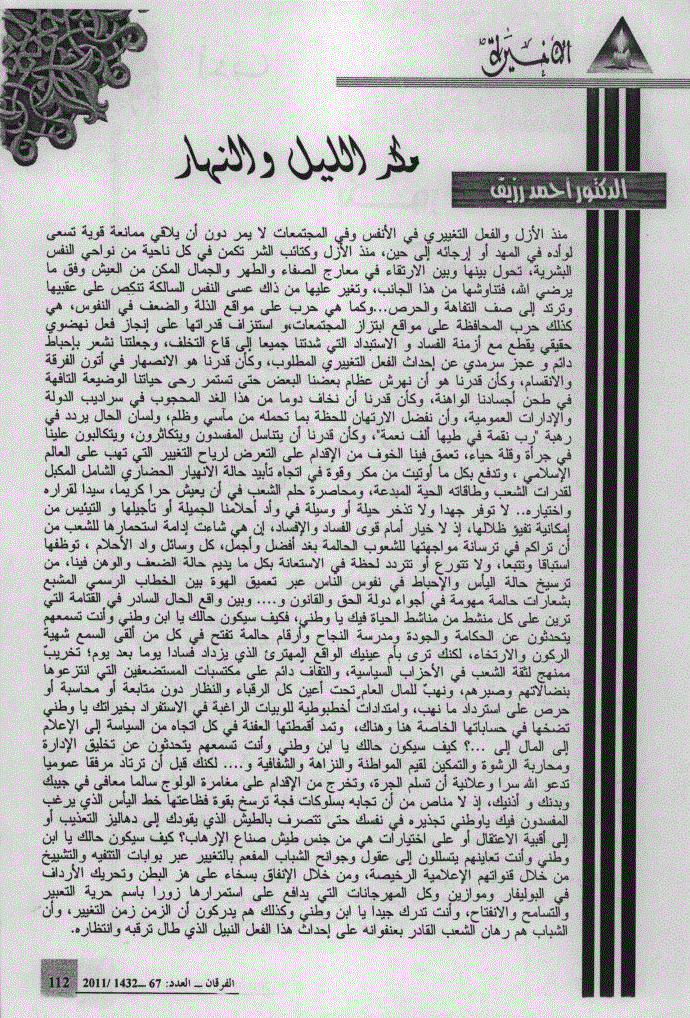 الأخيرة
مكر الليل والنهار
الدكتور أحمد رزيق
منذ الأزل والفعل التغييري في الأنفس وفي المجتمعات لا يمر دون أن يلاقي ممانعة قوية تسعى
لوأده في المهد أو إرجائه إلى حين، منذ الأزل وكتائب الشر تكمن في كل ناحية من نواحي النفس
البشرية، تحول بينها وبين الارتقاء في معارج الصفاء والطهر والجمال المكن من العيش وفق ما
يرضي الله، فتناوشها من هذا الجانب، وتغير عليها من ذاك عسى النفس السالكة تنكص على عقبيها
وترتد إلى صف التفاهة والحرص...وكما هي حرب على مواقع الذلة والضعف في النفوس، هي
كذلك حرب المحافظة على مواقع ابتزاز المجتمعات،و استنزاف قدراتها على إنجاز فعل نهضوي
حقيقي يقطع مع أزمنة الفساد و الاستبداد التي شدتنا جميعا إلى قاع التخلف، وجعلتنا نشعر بإحباط
دائم و عجز سرمدي عن إحداث الفعل التغييري المطلوب، وكأن قدرنا هو الانصهار في أتون الفرقة
والانقسام، وكأن قدرنا هو أن نهرش عظام بعضنا البعض حتى تستمر رحى حياتنا الوضيعة التافهة
في طحن أجسادنا الواهنة، وكأن قدرنا أن نخاف دوما من هذا الغد المحجوب في سراديب الدولة
والإدارات العمومية، وأن نفضل الارتهان للحظة بما تحمله من مآسي وظلم، ولسان الحال يردد في
رهبة "رب نقمة في طيها ألف نعمة"، وكأن قدرنا أن يتناسل المفسدون ويتكاثرون، ويتكالبون علينا
في جرأة وقلة حياء، تعمق فينا الخوف من الإقدام على التعرض لرياح التغيير التي تهب على العالم
الإسلامي ، وتدفع بكل ما أوتيت من مكر وقوة في اتجاه تأبيد حالة الانهيار الحضاري الشامل المكبل
لقدرات الشعب وطاقاته الحية المبدعة، ومحاصرة حلم الشعب في أن يعيش حرا كريما، سيدا لقراره
واختياره.. لا توفر جهدا ولا تذخر حيلة أو وسيلة في وأد أحلامنا الجميلة أو تأجيلها و التيئيس من
إمكانية تفيؤ ظلالها، إذ لا خيار أمام قوى الفساد والإفساد، إن هي شاءت إدامة استحمارها للشعب من
أن تراكم في ترسانة مواجهتها للشعوب الحالمة بغد أفضل وأجمل، كل وسائل وأد الأحلام ، توظفها
استباقا وتتبعا، ولا تتورع أو تتردد لحظة في الاستعانة بكل ما يديم حالة الضعف والوهن فينا، من
ترسيخ حالة اليأس والإحباط في نفوس الناس عبر تعميق الهوة بين الخطاب الرسمي المشبع
بشعارات حالمة مهومة في أجواء دولة الحق والقانون و.... وبين واقع الحال السادر في القتامة التي
ترين على كل منشط من مناشط الحياة فيك يا وطني، فكيف سيكون حالك يا ابن وطني وأنت تسمعهم
يتحدثون عن الحكامة والجودة ومدرسة النجاح وأرقام حالمة تفتح في كل من ألقى السمع شهية
الركون والارتخاء، لكنك ترى بأم عينيك الواقع المهترئ الذي يزداد فسادا يوما بعد يوم؛ تخريب
ممنهج لثقة الشعب في الأحزاب السياسية، والتفاف دائم على مكتسبات المستضعفين التي انتزعوها
بنضالاتهم وصبرهم، ونهب للمال العام تحت أعين كل الرقباء والنظار دون متابعة أو محاسبة أو
حرص على استرداد ما نهب، وامتدادات أخطبوطية للوبيات الراغبة في الاستفراد بخيراتك يا وطني
تضخها في حساباتها الخاصة هنا وهناك، وتمد أقمطتها العفنة في كل اتجاه من السياسة إلى الإعلام
إلى المال إلى ...؟ كيف سيكون حالك يا ابن وطني وأنت تسمعهم يتحدثون عن تخليق الإدارة
ومحاربة الرشوة والتمكين لقيم المواطنة والنزاهة والشفافية و.... لكنك قبل أن ترتاد مرفقا عموميا
تدعو الله سرا وعلانية أن تسلم الجرة، وتخرج من الإقدام على مغامرة الولوج سالما معافى في جيبك
وبدنك و أذنيك، إذ لا مناص من أن تجابه بسلوكات فجة ترسخ بقوة فظاعتها خط اليأس الذي يرغب
المفسدون فيك ياوطني تجذيره في نفسك حتى تتصرف بالطيش الذي يقودك إلى دهاليز التعذيب أو
إلى أقبية الاعتقال أو على اختيارات هي من جنس طيش صناع الإرهاب؟ كيف سيكون حالك يا ابن
وطني وأنت تعاينهم يتسللون إلى عقول وجوانح الشباب المفعم بالتغيير عبر بوابات التتفيه والتشييخ
من خلال قنواتهم الإعلامية الرخيصة، ومن خلال الإنفاق بسخاء على هز البطن وتحريك الأرداف
في البوليفار وموازين وكل المهرجانات التي يدافع على استمرارها زورا باسم حرية التعبير
والتسامح والانفتاح، وأنت تدرك جيدا يا ابن وطني وكذلك هم يدركون أن الزمن زمن التغيير، وأن
الشباب هم رهان الشعب القادر بعنفوانه على إحداث هذا الفعل النبيل الذي طال ترقبه وانتظاره.
الفرقان ــ العدد: 67 ــ1432 /2011 112